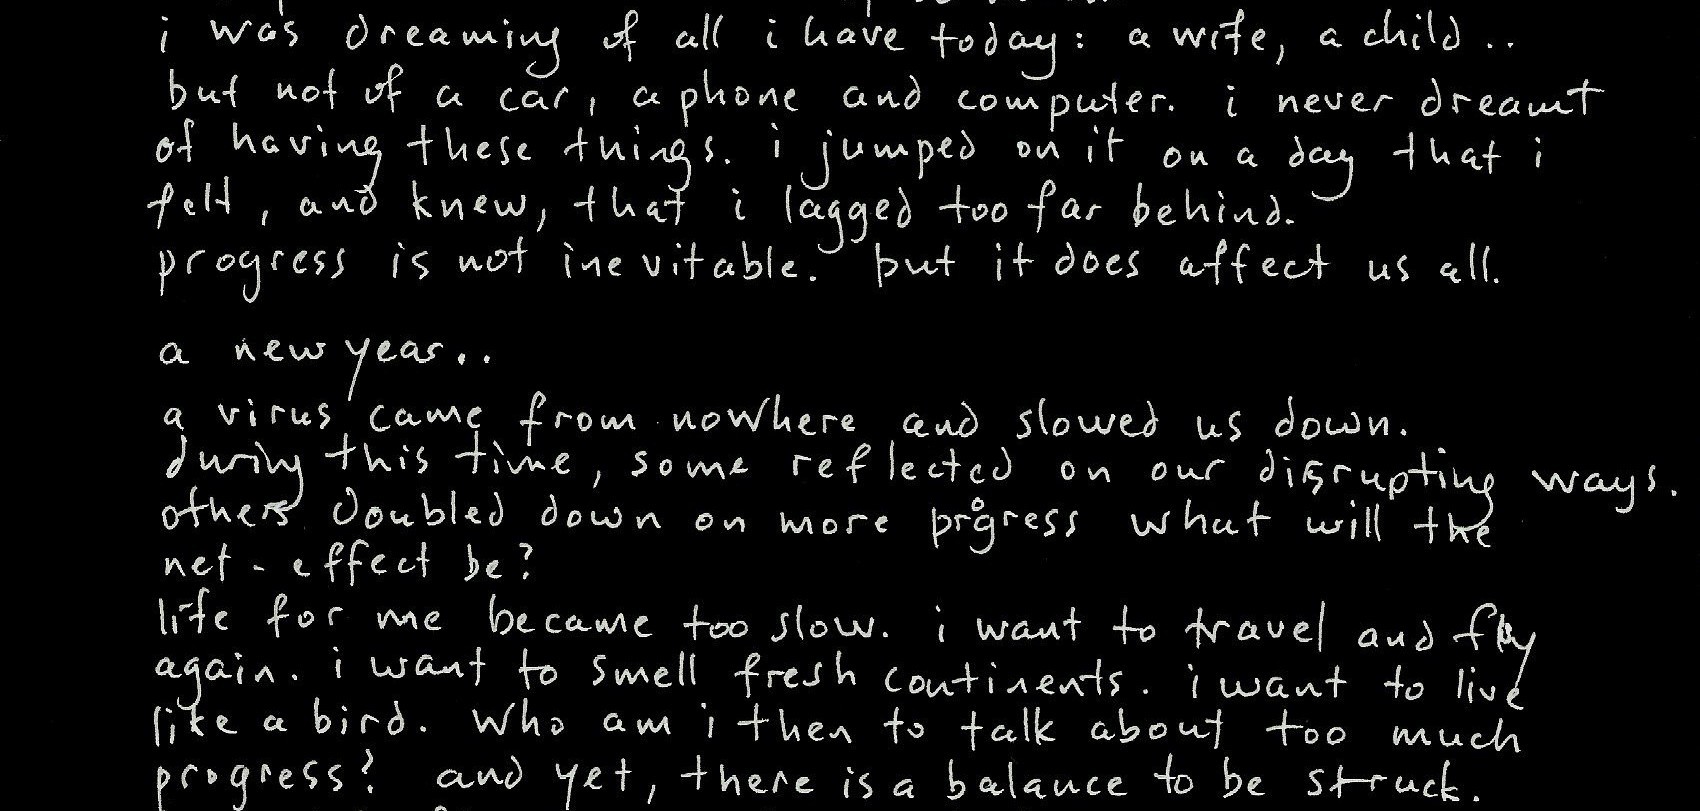 i was dreaming of all i have today: a wife, a child..
but not of a car, a phone and computer. i never dreamt
of having these things. i jumped on it on a day that i
felt, and knew, that i lagged too far behind.
progress is not inevitable. but it does affect us all.
a new year..
a virus came from nowhere and slowed us down.
during this time, some reflected on our disrupting ways.
others doubled down on more progress what will the
net-effect be?
life for me became too slow. i want to travel and fly
again. i want to smell fresh continents. i want to live
like a bird. who am i then to talk about too much
progress? and yet, there is a balance to be struck.